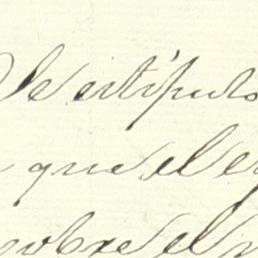 Se estipulo
que el e
sobre el